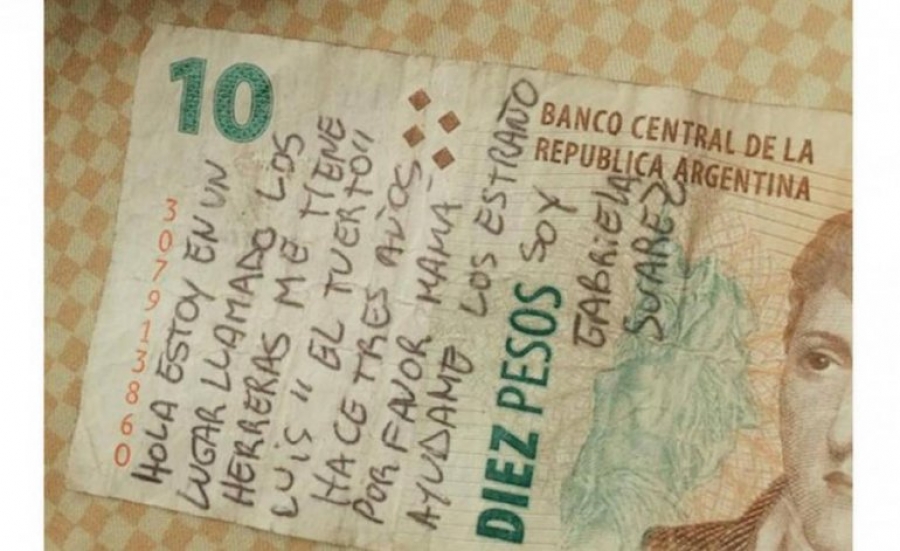 10
30791 3860
BANCO CENTRAL DE LA
REPUBLICA ARGENTINA
DIEZ PESOS
HOLA ESTOY EN UN
LUGAR LLAMADO LOS
HERRERAS ME TIENE
LUIS "EL TUERTO"
HACE TRES AÑOS
POR FAVOR MAMÁ
AYUDAME LOS ESTRAÑO
SOY
GABRIELA
SUAREZ